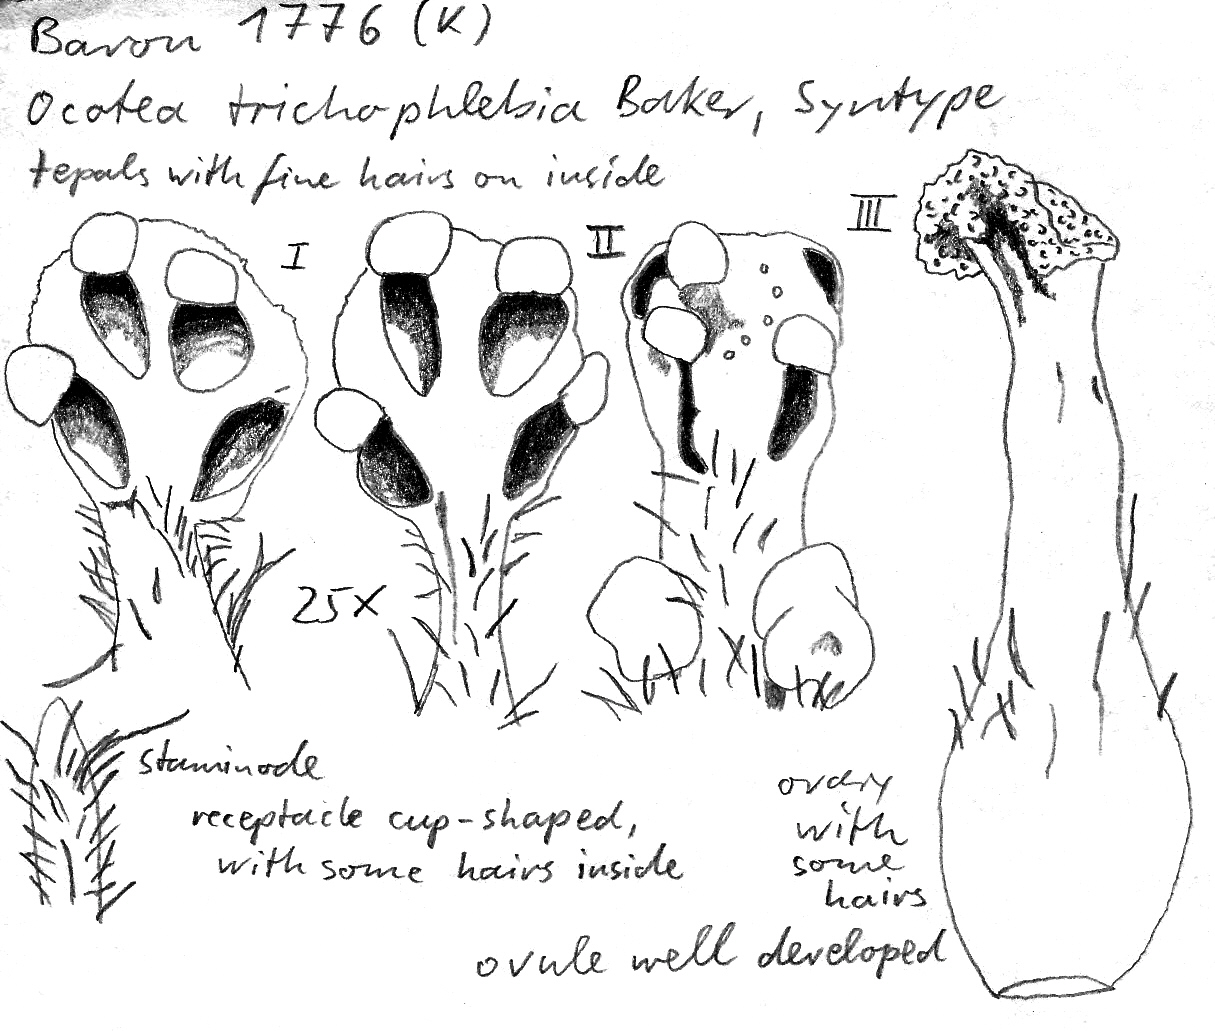 Baron 1776 (K)
Ocotea trichophlebia Baker, Syntype
tepals with fine hairs on inside
I
II
III
25x
staminode
receptacle cup-shaped,
with some hairs inside
ovary
with
some
hairs
ovule well developed